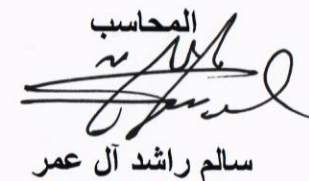 المحاسب
سالم راشد آل عمر